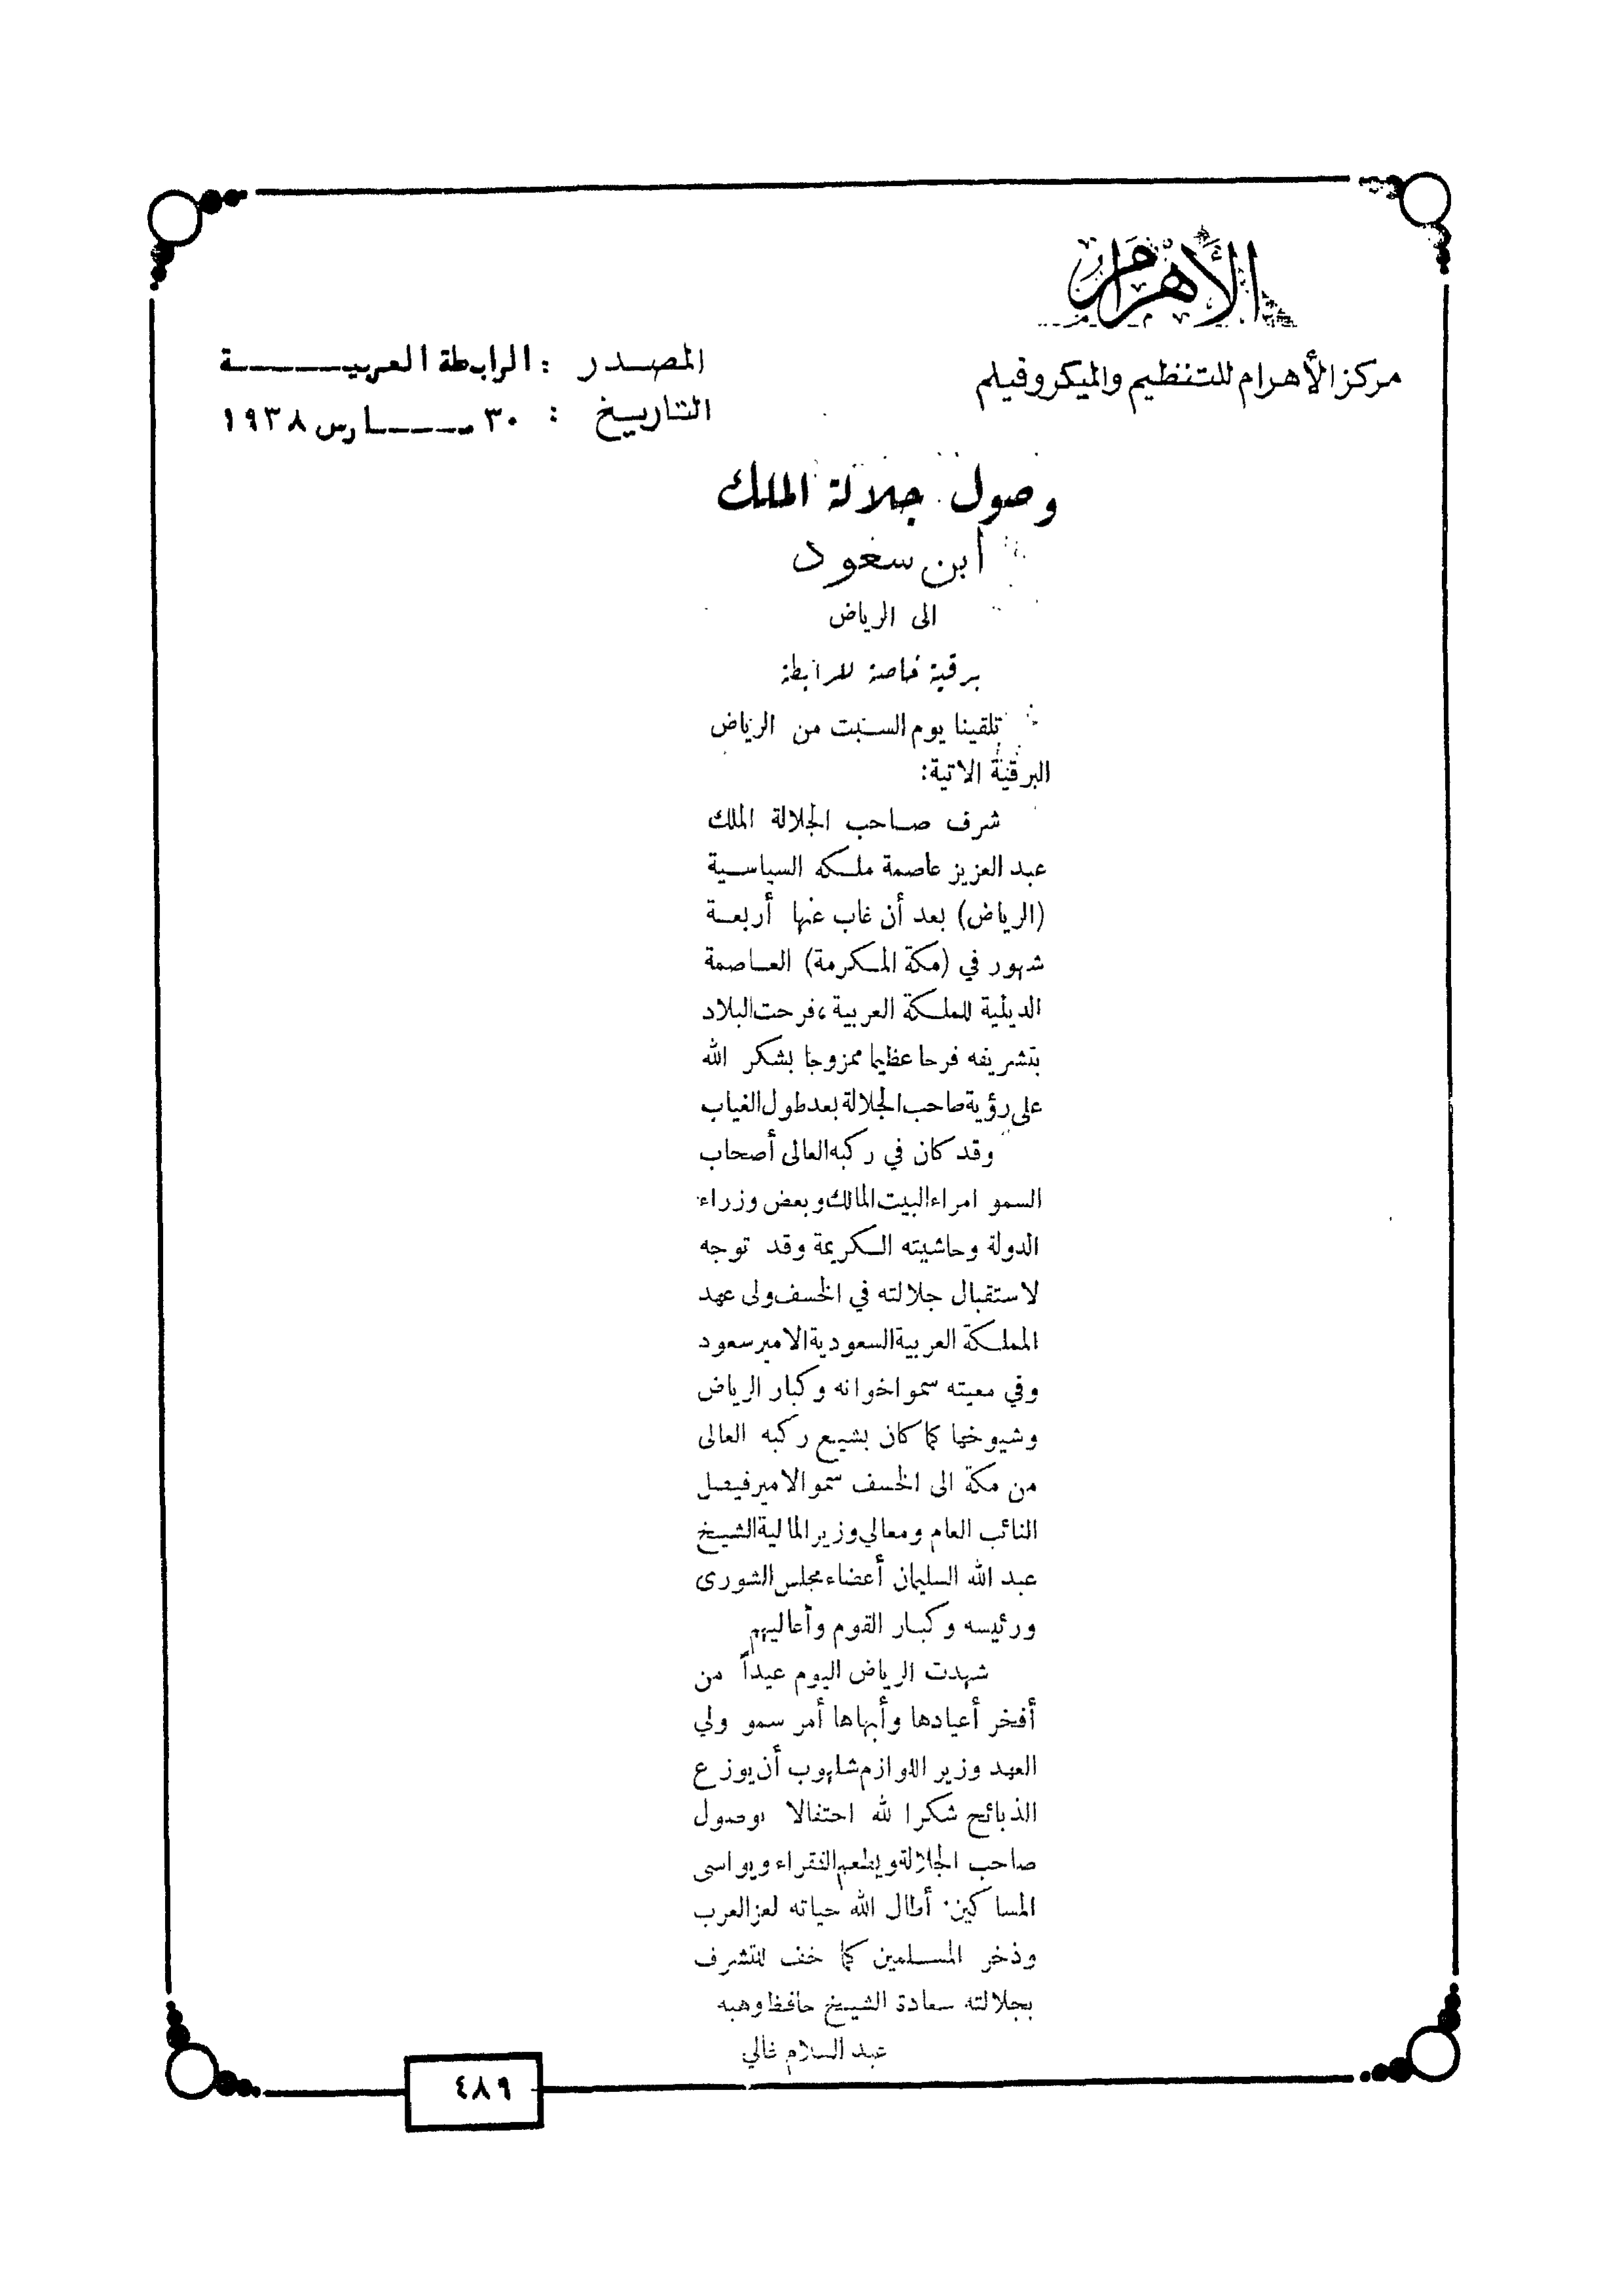 الأهرام
مركز الأهرام للتنظيم والميكروفيلم
المصدر : الرابطة العربية
التاريخ : ٣٠ مارس ١٩٣٨
وصول جلالة الملك
ابن سعود
الى الرياض
برقية خاصة للرابطة
تلقينا يوم السبت من الرياض
البرقية الاتية:
شرف صاحب الجلالة الملك
عبد العزيز عاصمة ملكه السياسية
(الرياض) بعد أن غاب عنها أربعة
شهور في (مكة المكرمة) العاصمة
الدينية للملكة العربية، فرحت البلاد
بتشريفه فرحا عظيما ممزوجا بشكر الله
على رؤية صاحب الجلالة بعد طول الغياب
وقد كان في ركبه العالى أصحاب
السمو امراء البيت المالك وبعض وزراء
الدولة وحاشيته الكريمة وقد توجه
لاستقبال جلالته في الخسف ولى عهد
المملكة العربية السعودية الامير سعود
وفي معيته سمو اخوانه وكبار الرياض
وشيوخها كما كان بشيع ركبه العالى
من مكة الى الخسف سمو الامير فيصل
النائب العام ومعالي وزير المالية الشيخ
عبد الله السليمان أعضاء مجلس الشورى
ورئيسه وكبار القوم وأعاليهم
شهدت الرياض اليوم عيداً من
أفخر أعيادها وأبهاها أمر سمو ولي
العهد وزير اللوازم شلهوب أن يوزع
الذبائح شكرا لله احتفالا بوصول
صاحب الجلالة ويطعم الفقراء ويواسى
المساكين. أطال الله حياته لعز العرب
وذخر المسلمين كما خف للتشرف
بجلالته سعادة الشيخ حافظ وهبه
عبد السلام غالي
٤٨٩